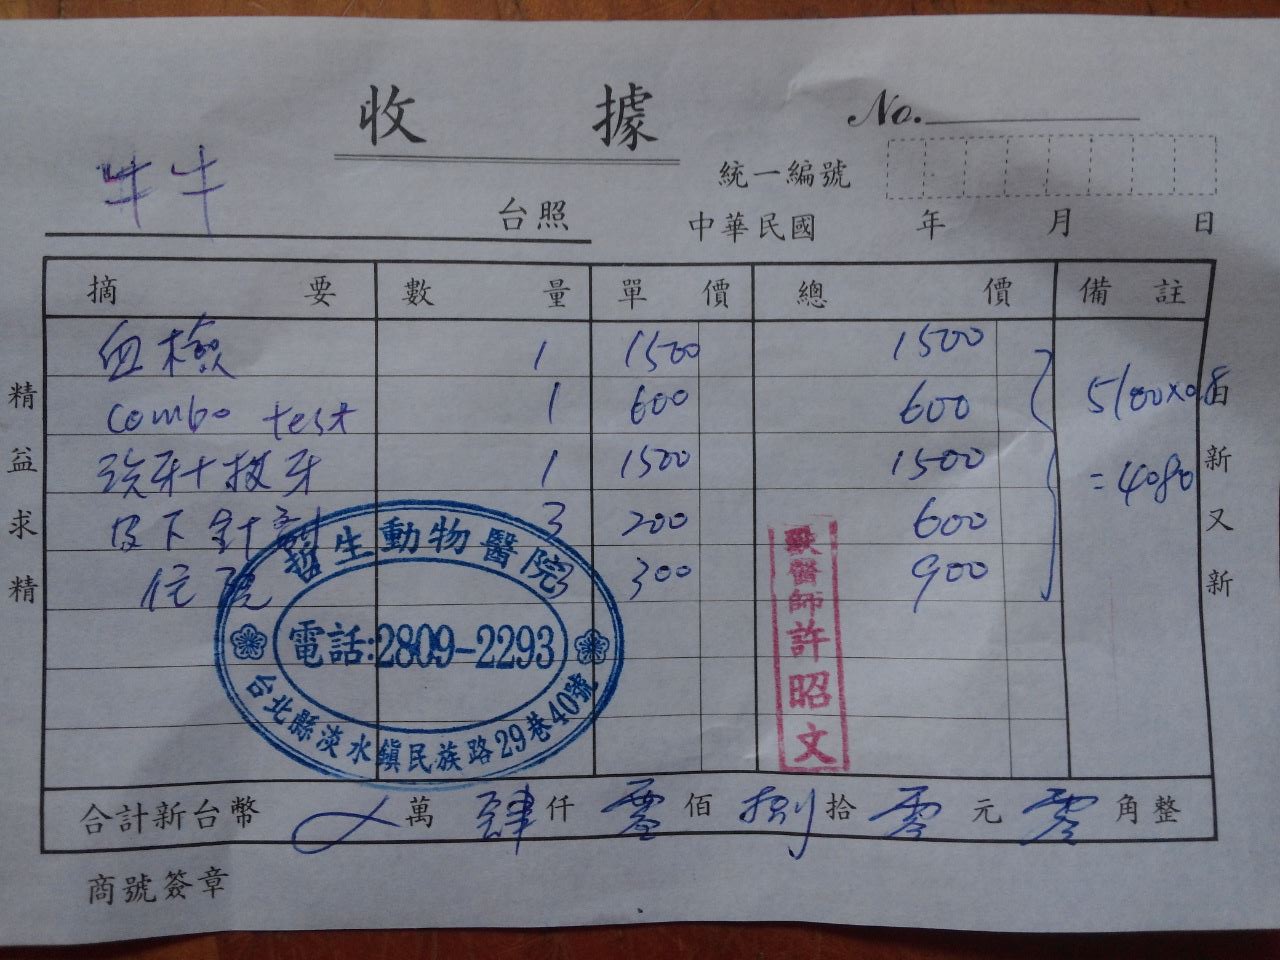 收據
No.
統一編號
牛牛 台照
中華民國 年 月 日
摘要 數量 單價 總價 備註
血檢 1 1500 1500
combo test 1 600 600
洗牙+拔牙 1 1500 1500
皮下針劑 3 200 600
住院 3 300 900
5100×0.8
=4080
精益求精
日新又新
哲生動物醫院
電話:2809-2293
台北縣淡水鎮民族路29巷40號
獸醫師許昭文
合計新台幣 萬 肆 仟 零 佰 捌 拾 零 元 零 角整
商號簽章